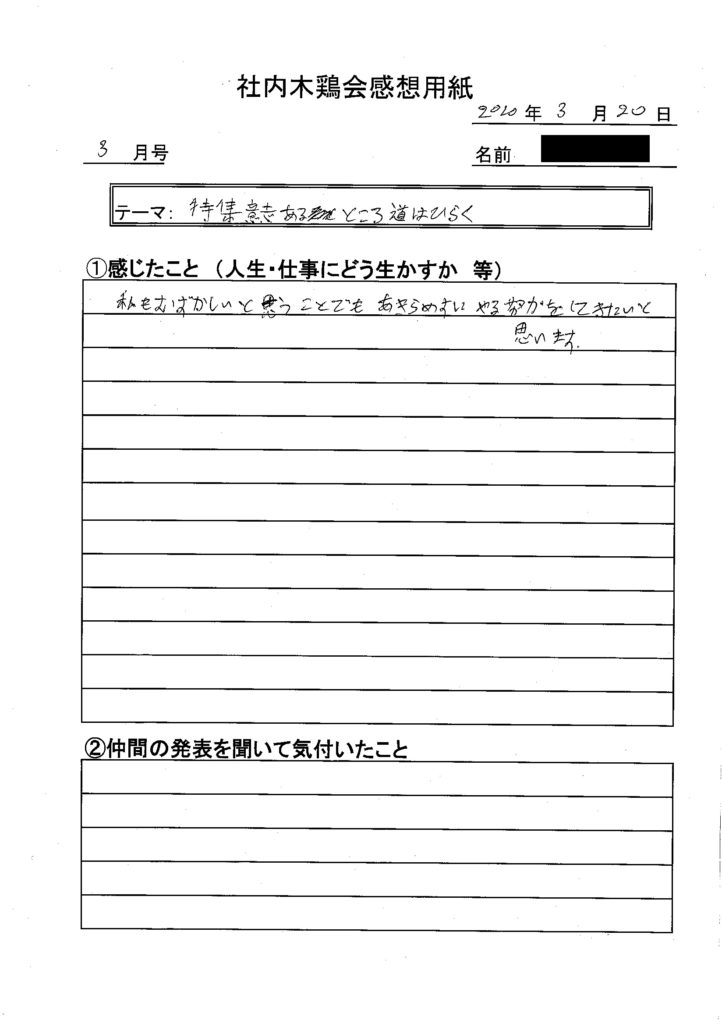 社内木鶏会感想用紙
2020年 3 月 20 日
3 月号
名前
テーマ: 特集意志あるところ道はひらく
①感じたこと (人生・仕事にどう生かすか 等)
私もむずかしいと思うことでもあきらめずにやる努力をしてきたいと
思います.
②仲間の発表を聞いて気付いたこと